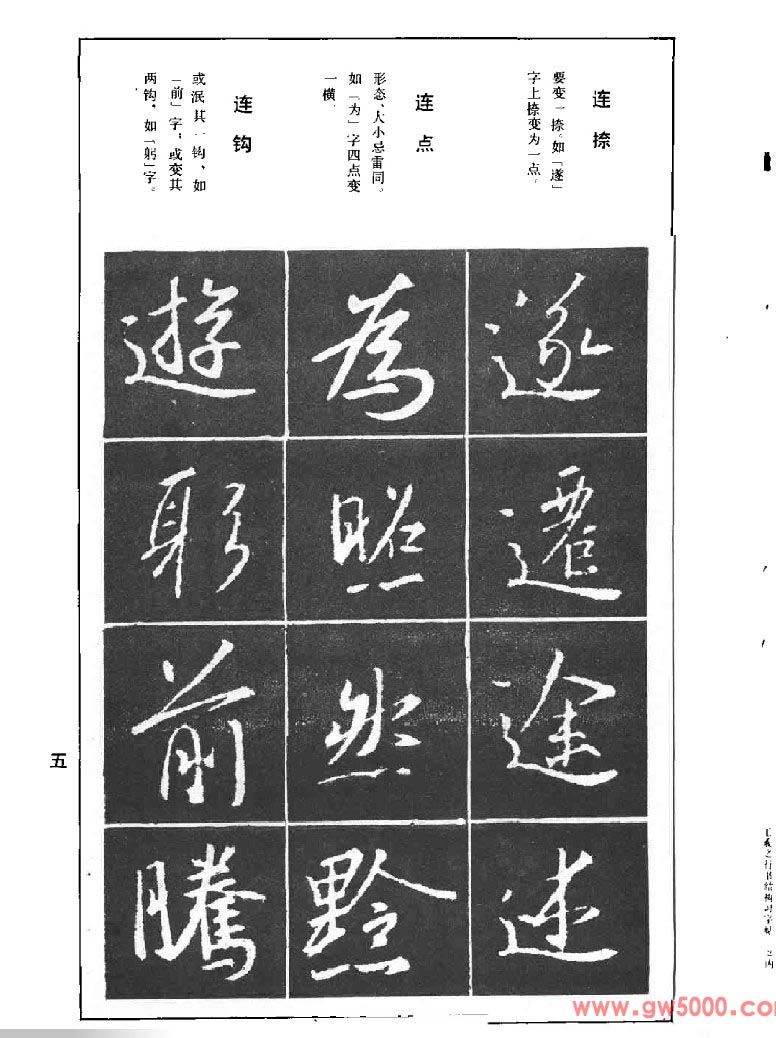 连捺
要变一捺。如「遂」
字上捺变为一点。
连点
形态、大小忌雷同。
如「为」字四点变
一横。
连钩
或泯其一钩、如
「前」字；或变其
两钩，如「躬」字。
遂
遷
途
述
為
照
然
黔
遊
躬
前
騰
五
王羲之行书结构习字帖
www.gw5000.com